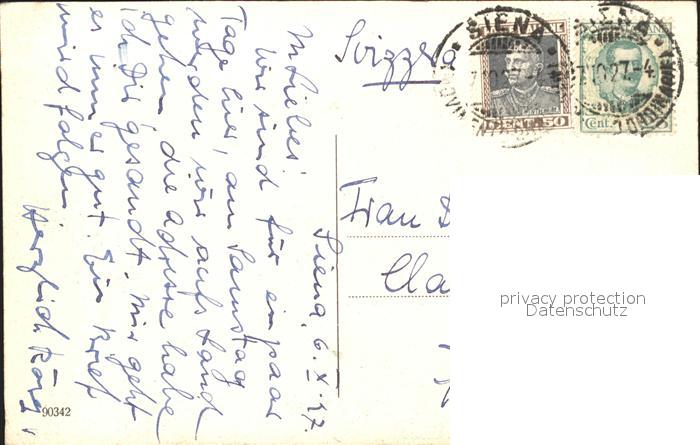 Siena, 6. X. 27.
M. Liebes!
Wir sind für ein paar
Tage hier, am Samstag
werden wir aufs Land
gehen, die Adresse habe
ich Dir gesandt. Mir geht
es immer gut. Ein Brief
wird folgen
Herzlich
Svizzera
SIENA
SIENA
CENT. 50
Cent.
Frau
Cla
privacy protection
Datenschutz
90342